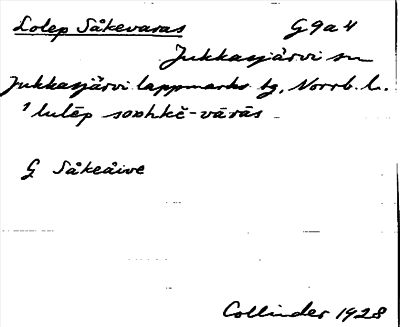 Lolep Såkevaras G9a4
Jukkasjärvi sn
Jukkasjärvi lappmarks tg, Norrb. l.
¹ lulēp soəhkē-vārās
G Såkeåive
Collinder 1928